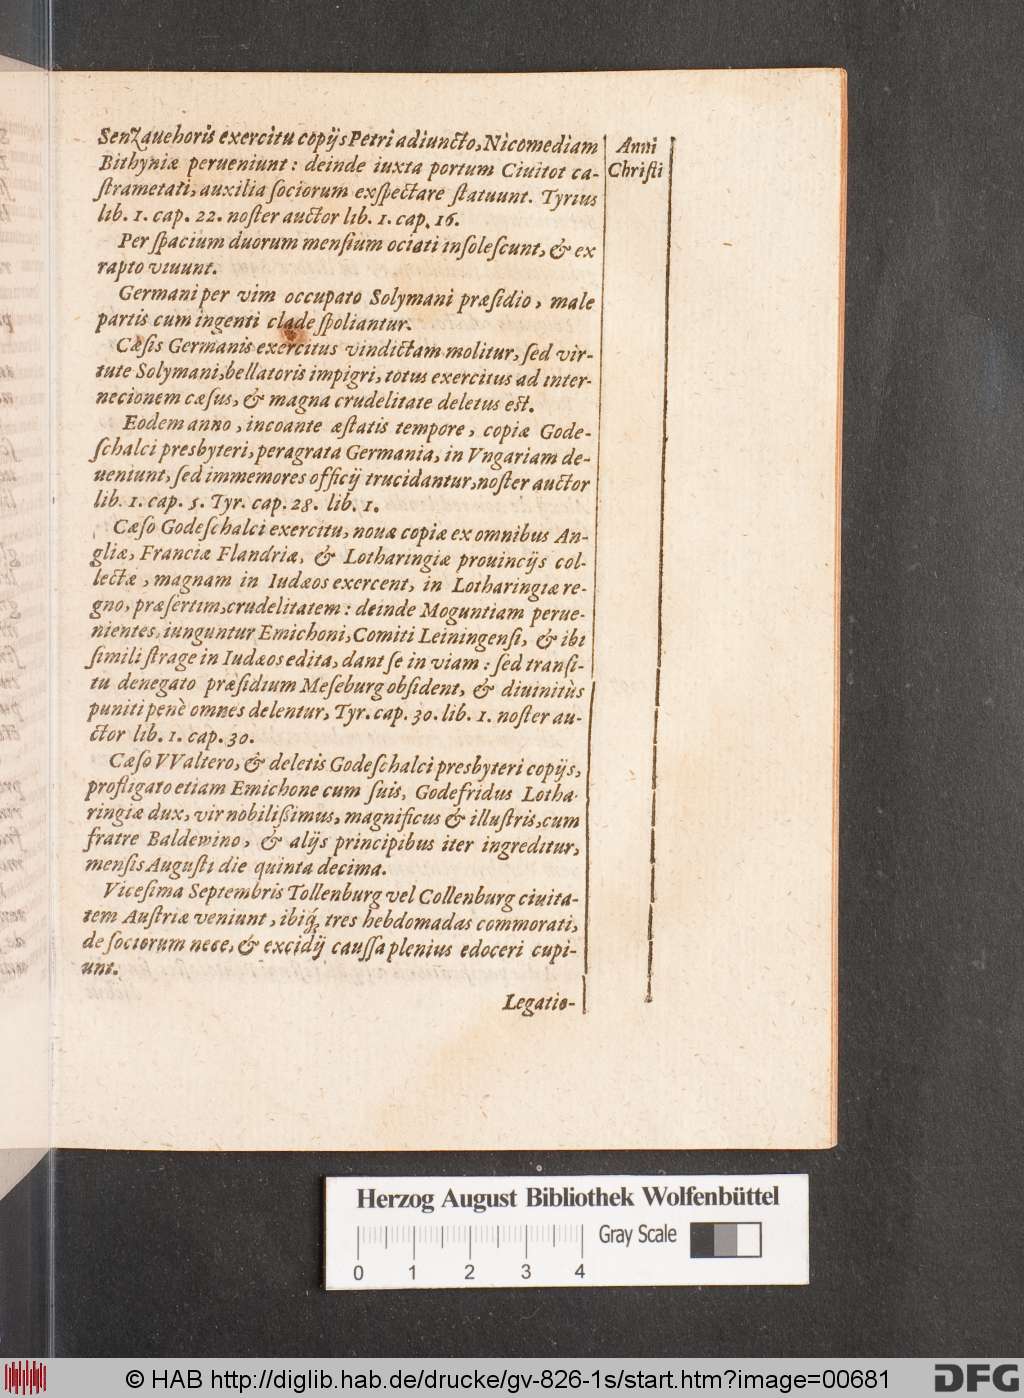 Senzauehoris exercitu copijs Petri adiuncto, Nicomediam
Bithyniæ perueniunt: deinde iuxta portum Ciuitot ca-
strametati, auxilia sociorum exspectare statuunt. Tyrius
lib. 1. cap. 22. noster auctor lib. 1. cap. 16.
Anni
Christi
Per spacium duorum mensium ociati insolescunt, & ex
rapto viuunt.
Germani per vim occupato Solymani præsidio, male
partis cum ingenti clade spoliantur.
Cæsis Germanis exercitus vindictam molitur, sed vir-
tute Solymani, bellatoris impigri, totus exercitus ad inter-
necionem cæsus, & magna crudelitate deletus est.
Eodem anno, incoante æstatis tempore, copiæ Gode-
schalci presbyteri, peragrata Germania, in Vngariam de-
ueniunt, sed immemores officij trucidantur, noster auctor
lib. 1. cap. 5. Tyr. cap. 28. lib. 1.
Cæso Godeschalci exercitu, nouæ copiæ ex omnibus An-
gliæ, Franciæ Flandriæ, & Lotharingiæ prouincijs col-
lectæ, magnam in Iudæos exercent, in Lotharingiæ re-
gno, præsertim, crudelitatem: deinde Moguntiam perue-
nientes, iunguntur Emichoni, Comiti Leiningensi, & ibi
simili strage in Iudæos edita, dant se in viam: sed transi-
tu denegato præsidium Meseburg obsident, & diuinitùs
puniti penè omnes delentur, Tyr. cap. 30. lib. 1. noster au-
ctor lib. 1. cap. 30.
Cæso VValtero, & deletis Godeschalci presbyteri copijs,
profligato etiam Emichone cum suis, Godefridus Lotha-
ringiæ dux, vir nobilißimus, magnificus & illustris, cum
fratre Baldewino, & alijs principibus iter ingreditur,
mensis Augusti die quinta decima.
Vicesima Septembris Tollenburg vel Collenburg ciuita-
tem Austriæ veniunt, ibiq́; tres hebdomadas commorati,
de sociorum nece, & excidij caussa plenius edoceri cupi-
unt.
Legatio-
Herzog August Bibliothek Wolfenbüttel
Gray Scale
0 1 2 3 4
© HAB http://diglib.hab.de/drucke/gv-826-1s/start.htm?image=00681
DFG